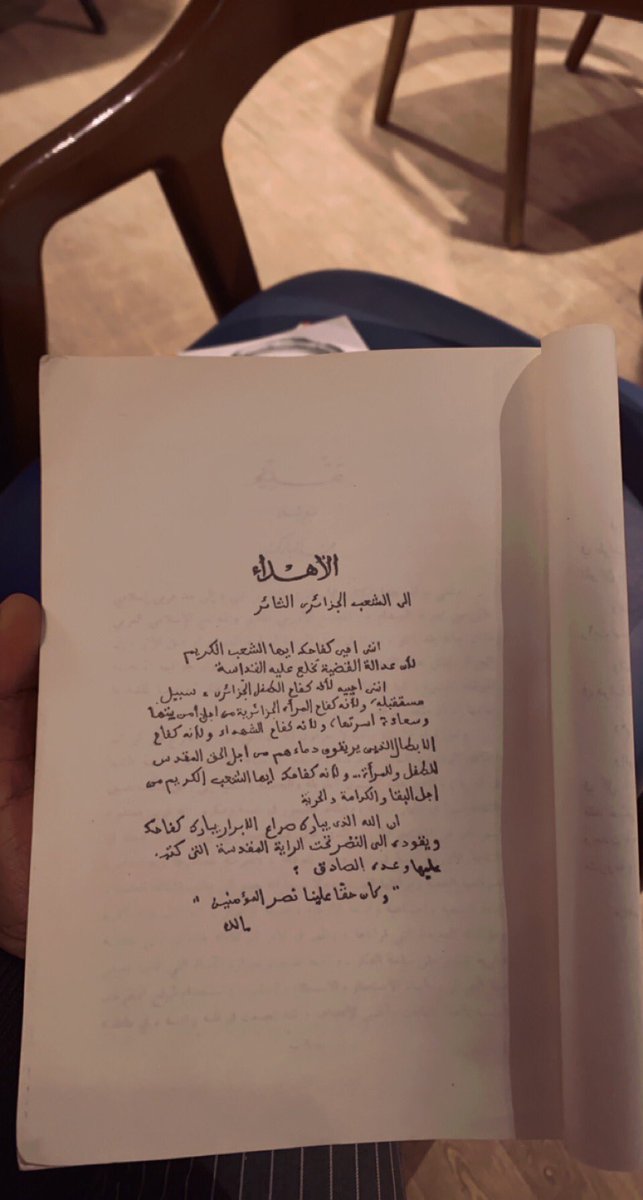 الأهداء
الى الشعب الجزائرى الثائر
اننى احيى كفاحك ايها الشعب الكريم
لأن عدالة القضية تخلع عليه القداسة
اننى احييه لأنه كفاح الطفل الجزائرى فى سبيل
مستقبله، ولأنه كفاح المرأة الجزائرية من اجل أمن بيتها
وسعادة اسرتها، ولأنه كفاح الشهداء ولأنه كفاح
الابطال الذين يريقون دماءهم من اجل الحق المقدس
للطفل وللمرأة... ولأنه كفاحك ايها الشعب الكريم من
اجل البقا والكرامة والحرية
ان الله الذى يبارك صراع الابرار يبارك كفاحك
ويقودك الى النصر تحت الراية المقدسة التى كتب
عليها وعده الصادق ؟
"وكان حقا علينا نصر المؤمنين"
مالك